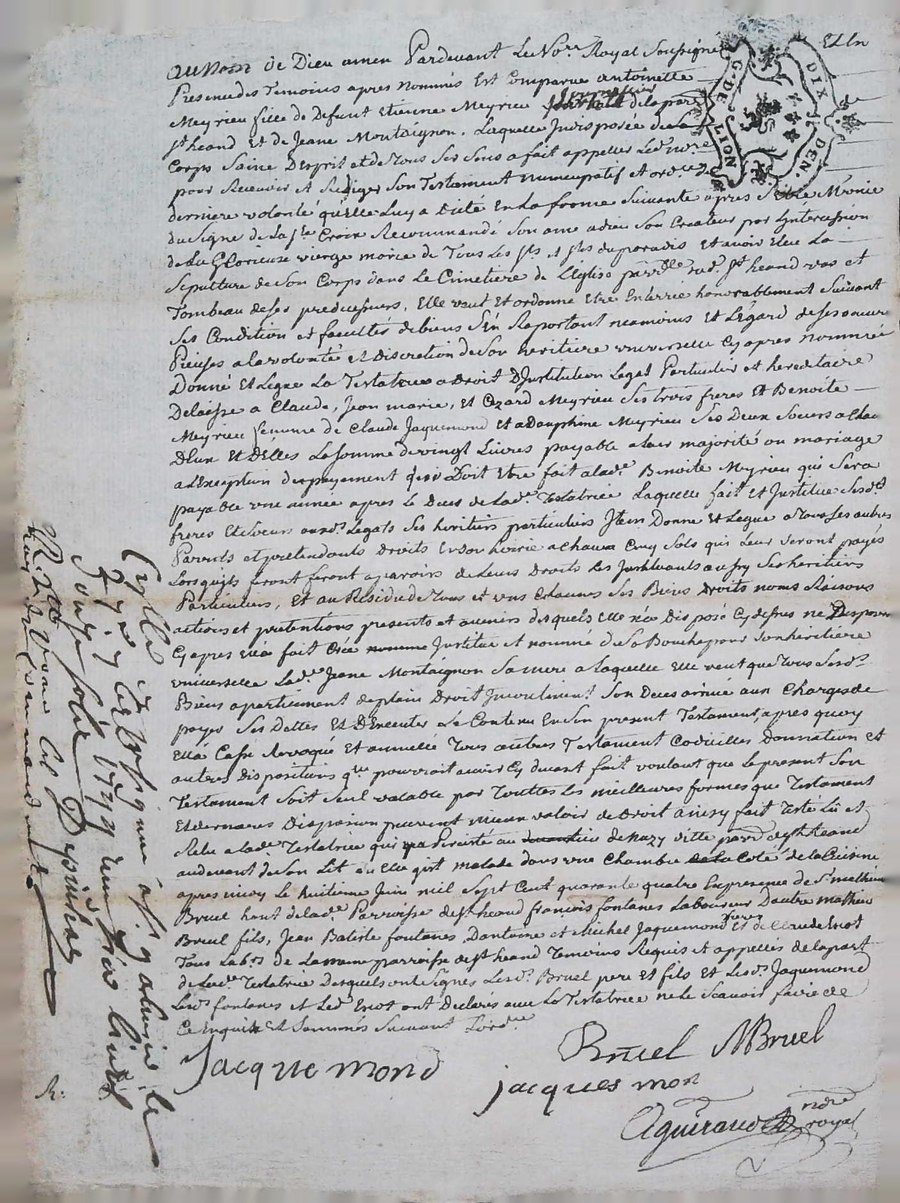 au Nom de Dieu amen Pardevant Le No.re Royal Soussigné
Presens des Temoins apres Nommés Est Comparue antoinette
Meyrieu fille de Defunt Etienne Meyrieu de la par.
st heand Et de Jeanne Montaignon, Laquelle Indisposée de Son
Corps Saine D'esprit et de Tous Ses Sens a fait appeller Led. No.re
pour Recevoir Et Rediger Son Testament nuncupatif Et ord.re
derniere volonté qu'elle Luy a Dicté En La forme Suivante apres S'être Munie
du Signe de La s.te Croix Recommandé Son ame a dieu Son Createur par Lintercession
de La Glorieuse vierge marie de Tous Les s.ts et s.tes du paradis Et avoir Eleu La
Sepulture de Son Corps dans Le Cimetiere de L'Eglise par.lle dud. s.t heand vas et
Tombeau de Ses predecesseurs, Elle veut Et ordonne Etre Enterrée honorablement Suivant
Ses Condition et facultes de biens S'en Raportant neamoins Et L'égard de Ses oeuvres
Pieuses a la volonté et discretion de Son heritiere universelle Cy apres nommée
Donne Et Legue La Testatrice a Droit D'Institution Legat Particulier et hereditaire
Delaissé a Claude, Jean marie, Et Cezard Meyrieu Ses trois freres Et Benoite
Meyrieu femme de Claude Jaquemond Et a Dauphine Meyrieu Ses Deux Soeurs a Chacun
D'Eux Et D'Elles La Somme de vingt Livres payable a Leur majorité ou mariage
a L'Exception du payement qui Doit Etre fait a lad.e Benoite Meyrieu qui Sera
payable une année apres Le Deces de Lad.e Testatrice Laquelle fait Et Institue Sesd.
freres Et Soeurs auxd. Legats Ses heritiers particuliers Item Donne Et Legue a Tous Ses autres
Parents et pretendants Droits En Son hoirie a Chacun Cinq Sols qui Leur Seront payés
Lorsqu'ils feront aparoir de Leurs Droits Les Instituants aussy Ses heritiers
Particuliers, Et au Residu de Tous et uns Chacuns Ses Biens Droits noms Raisons
actions et pretentions presents et avenirs desquels Elle n'a Disposé Cy dessus ne Disposera
Cy apres Elle a fait Créé nommé Institué et nommée de Sa Bouche pour Son heritiere
universelle Lad.e Jeane Montaignon Sa mere a laquelle Elle veut que Tous Sesd.
Biens apartiennent de plain Droit Son Deces arrivé aux Charges de
payer Ses Dettes Et D'Executer Le Contenu En Son present Testament apres quoy
Elle a Cassé Revoqué Et annullé Tous autres Testament Codicilles donnation et
autres dispositions q.lle pourroit avoir Cy devant fait voulant que Le present Son
Testament Soit Seul valable par Touttes Les meilleures formes que Testament
Et dernieres Disposition peuvent mieux valoir de Droit ainsy fait Testé Lû et
Relu a lad.e Testatrice qui y a Persisté au de Nazy ditte par.se de st heand
au devant de Son Lit ou Elle gist malade dans une Chambre Coté de la Cuisine
apres midy Le huitieme Juin mil Sept Cent quarante quatre En presence de S.r mathieu
Bruel hout de lad.e Parroisse de st heand françois fontanes Laboureur D'autre mathieu
Bruel fils, Jean Batiste fontanes, D'antoine et Michel Jaquemond freres Et de Claude Enot
Tous Lab.rs de La meme parroisse de st heand Temoins Requis Et appellés de la part
de Lad.e Testatrice Desquels ont Signés Lesd. Bruel pere Et fils Et Lesd. Jaquemond
Lesd. fontanes et Led. Enot ont Declarés avec La Testatrice ne le Scavoir faire de
Ce Enquis Et Sommés Suivant Lord.ce
Jacquemond
Bruel MBruel
jacquesmon
Aguiraud no.re royal
G. DE LION
DIX DEN.
R.